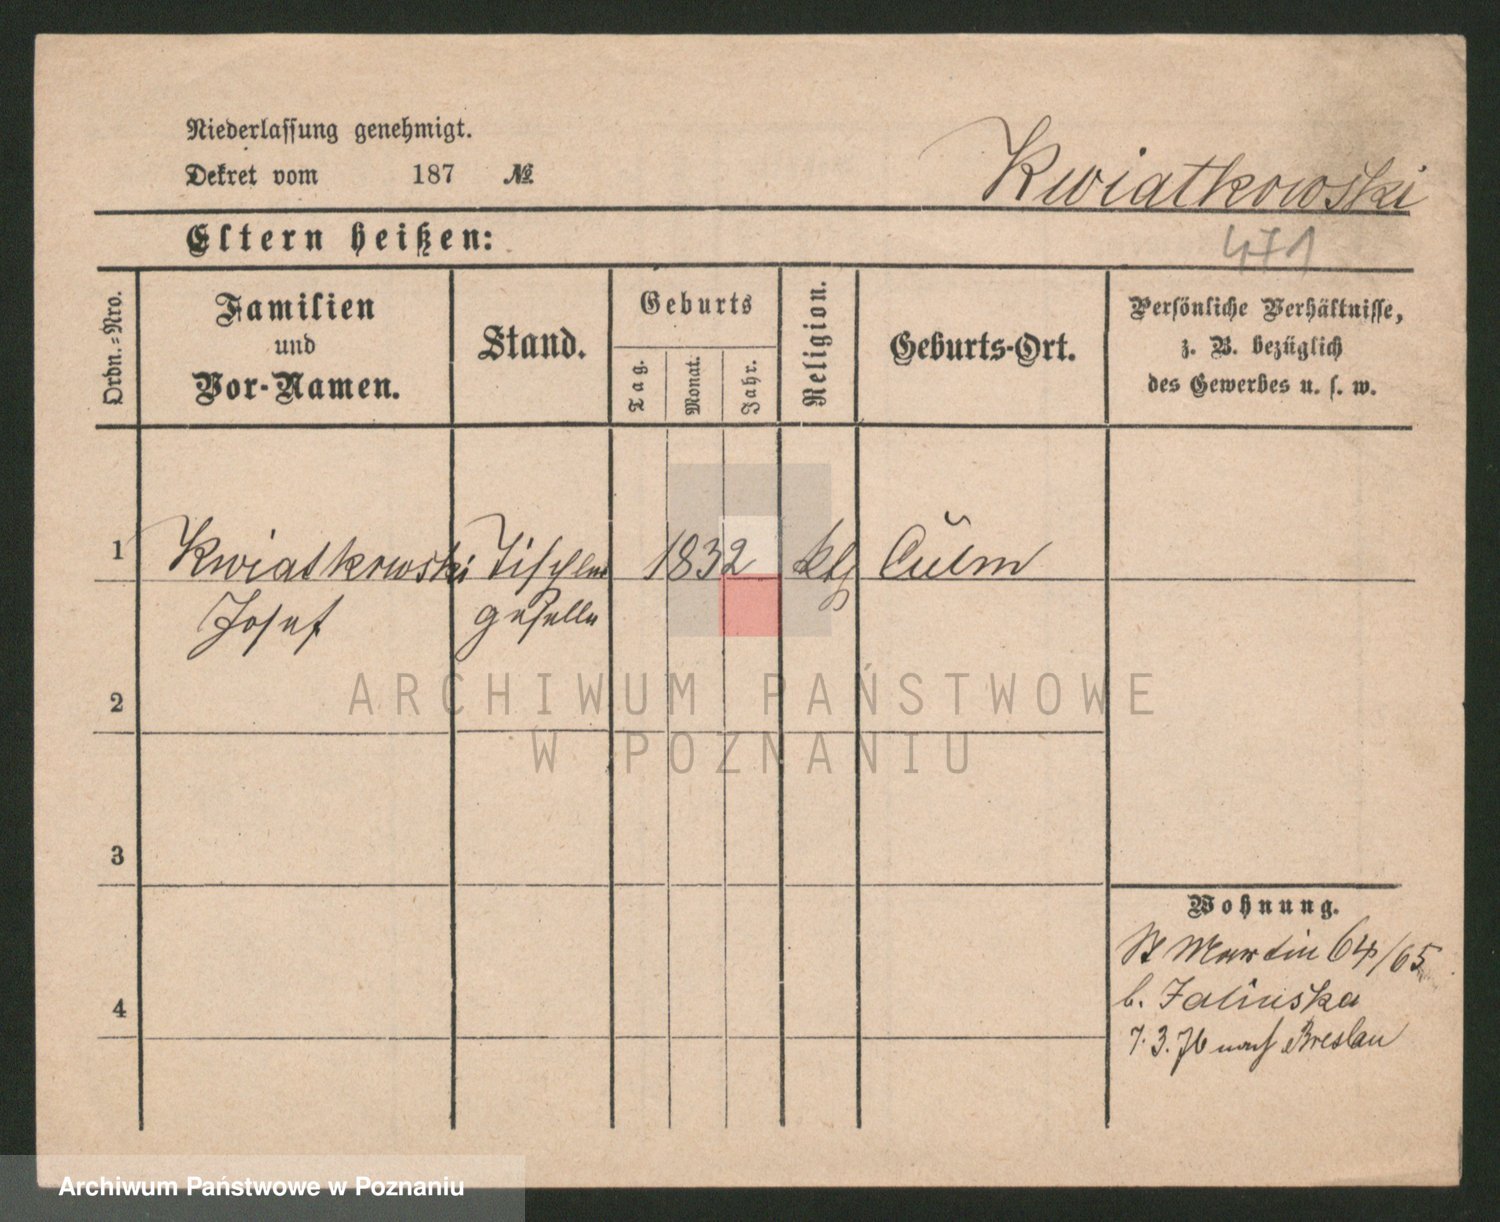 Niederlassung genehmigt.
Dekret vom 187 №
Kwiatkowski
471
Eltern heißen:
Ordn.-Nro.
Familien
und
Vor-Namen.
Stand.
Geburts
Tag.
Monat.
Jahr.
Religion.
Geburts-Ort.
Persönliche Verhältnisse,
z. B. bezüglich
des Gewerbes u. s. w.
1 Kwiatkowski Tischler 1832 kth Culm
Josef geselle
2
3
4
Wohnung.
St Martin 64/65
b. Zalinska
7.3.76 nach Breslau
ARCHIWUM PAŃSTWOWE
W POZNANIU
Archiwum Państwowe w Poznaniu